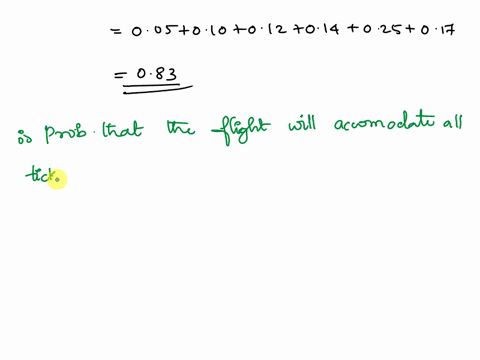 = 0.05+0.10+0.12+0.14+0.25+0.17
= 0.83
is prob. that the flight will accomodate all
tick